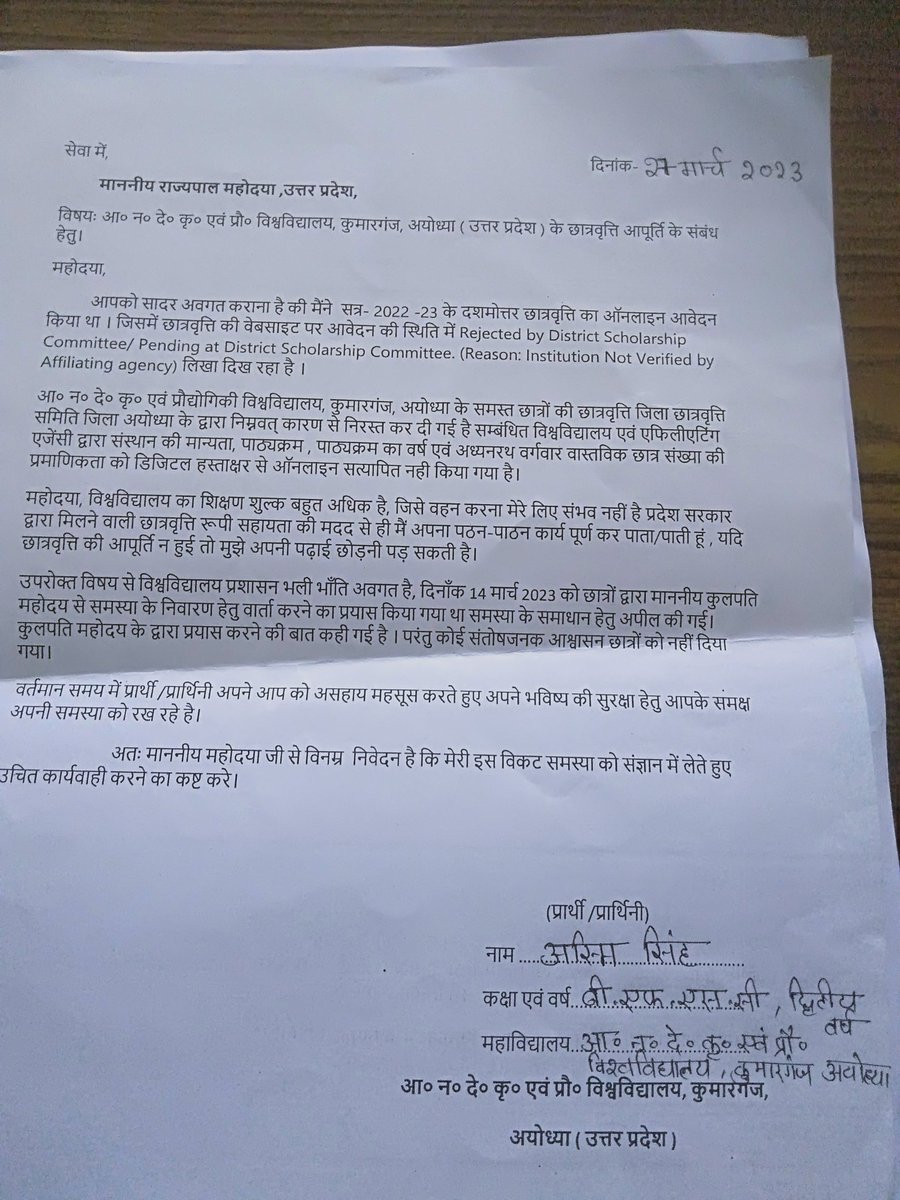 सेवा में,
दिनांक- 27 मार्च 2023
माननीय राज्यपाल महोदया ,उत्तर प्रदेश,
विषयः आ० न० दे० कृ० एवं प्रौ० विश्वविद्यालय, कुमारगंज, अयोध्या ( उत्तर प्रदेश ) के छात्रवृत्ति आपूर्ति के संबंध
हेतु।
महोदया,
आपको सादर अवगत कराना है की मैंने सत्र- 2022 -23 के दशमोत्तर छात्रवृत्ति का ऑनलाइन आवेदन
किया था । जिसमें छात्रवृत्ति की वेबसाइट पर आवेदन की स्थिति में Rejected by District Scholarship
Committee/ Pending at District Scholarship Committee. (Reason: Institution Not Verified by
Affiliating agency) लिखा दिख रहा है ।
आ० न० दे० कृ० एवं प्रौद्योगिकी विश्वविद्यालय, कुमारगंज, अयोध्या के समस्त छात्रों की छात्रवृत्ति जिला छात्रवृत्ति
समिति जिला अयोध्या के द्वारा निम्नवत् कारण से निरस्त कर दी गई है सम्बंधित विश्वविद्यालय एवं एफिलीएटिंग
एजेंसी द्वारा संस्थान की मान्यता, पाठ्यक्रम , पाठ्यक्रम का वर्ष एवं अध्यनरथ वर्गवार वास्तविक छात्र संख्या की
प्रमाणिकता को डिजिटल हस्ताक्षर से ऑनलाइन सत्यापित नही किया गया है।
महोदया, विश्वविद्यालय का शिक्षण शुल्क बहुत अधिक है, जिसे वहन करना मेरे लिए संभव नहीं है प्रदेश सरकार
द्वारा मिलने वाली छात्रवृत्ति रूपी सहायता की मदद से ही मैं अपना पठन-पाठन कार्य पूर्ण कर पाता/पाती हूं , यदि
छात्रवृत्ति की आपूर्ति न हुई तो मुझे अपनी पढ़ाई छोड़नी पड़ सकती है।
उपरोक्त विषय से विश्वविद्यालय प्रशासन भली भाँति अवगत है, दिनाँक 14 मार्च 2023 को छात्रों द्वारा माननीय कुलपति
महोदय से समस्या के निवारण हेतु वार्ता करने का प्रयास किया गया था समस्या के समाधान हेतु अपील की गई।
कुलपति महोदय के द्वारा प्रयास करने की बात कही गई है । परंतु कोई संतोषजनक आश्वासन छात्रों को नहीं दिया
गया।
वर्तमान समय में प्रार्थी /प्रार्थिनी अपने आप को असहाय महसूस करते हुए अपने भविष्य की सुरक्षा हेतु आपके समक्ष
अपनी समस्या को रख रहे है।
अतः माननीय महोदया जी से विनम्र निवेदन है कि मेरी इस विकट समस्या को संज्ञान में लेते हुए
उचित कार्यवाही करने का कष्ट करे।
(प्रार्थी /प्रार्थिनी)
नाम ..... सिंह
कक्षा एवं वर्ष.. बी.एफ.एस.सी, द्वितीय
वर्ष
महाविद्यालय.. आ० न० दे० कृ० एवं प्रौ०
विश्वविद्यालय, कुमारगंज अयोध्या
आ० न० दे० कृ० एवं प्रौ० विश्वविद्यालय, कुमारगंज,
अयोध्या ( उत्तर प्रदेश )